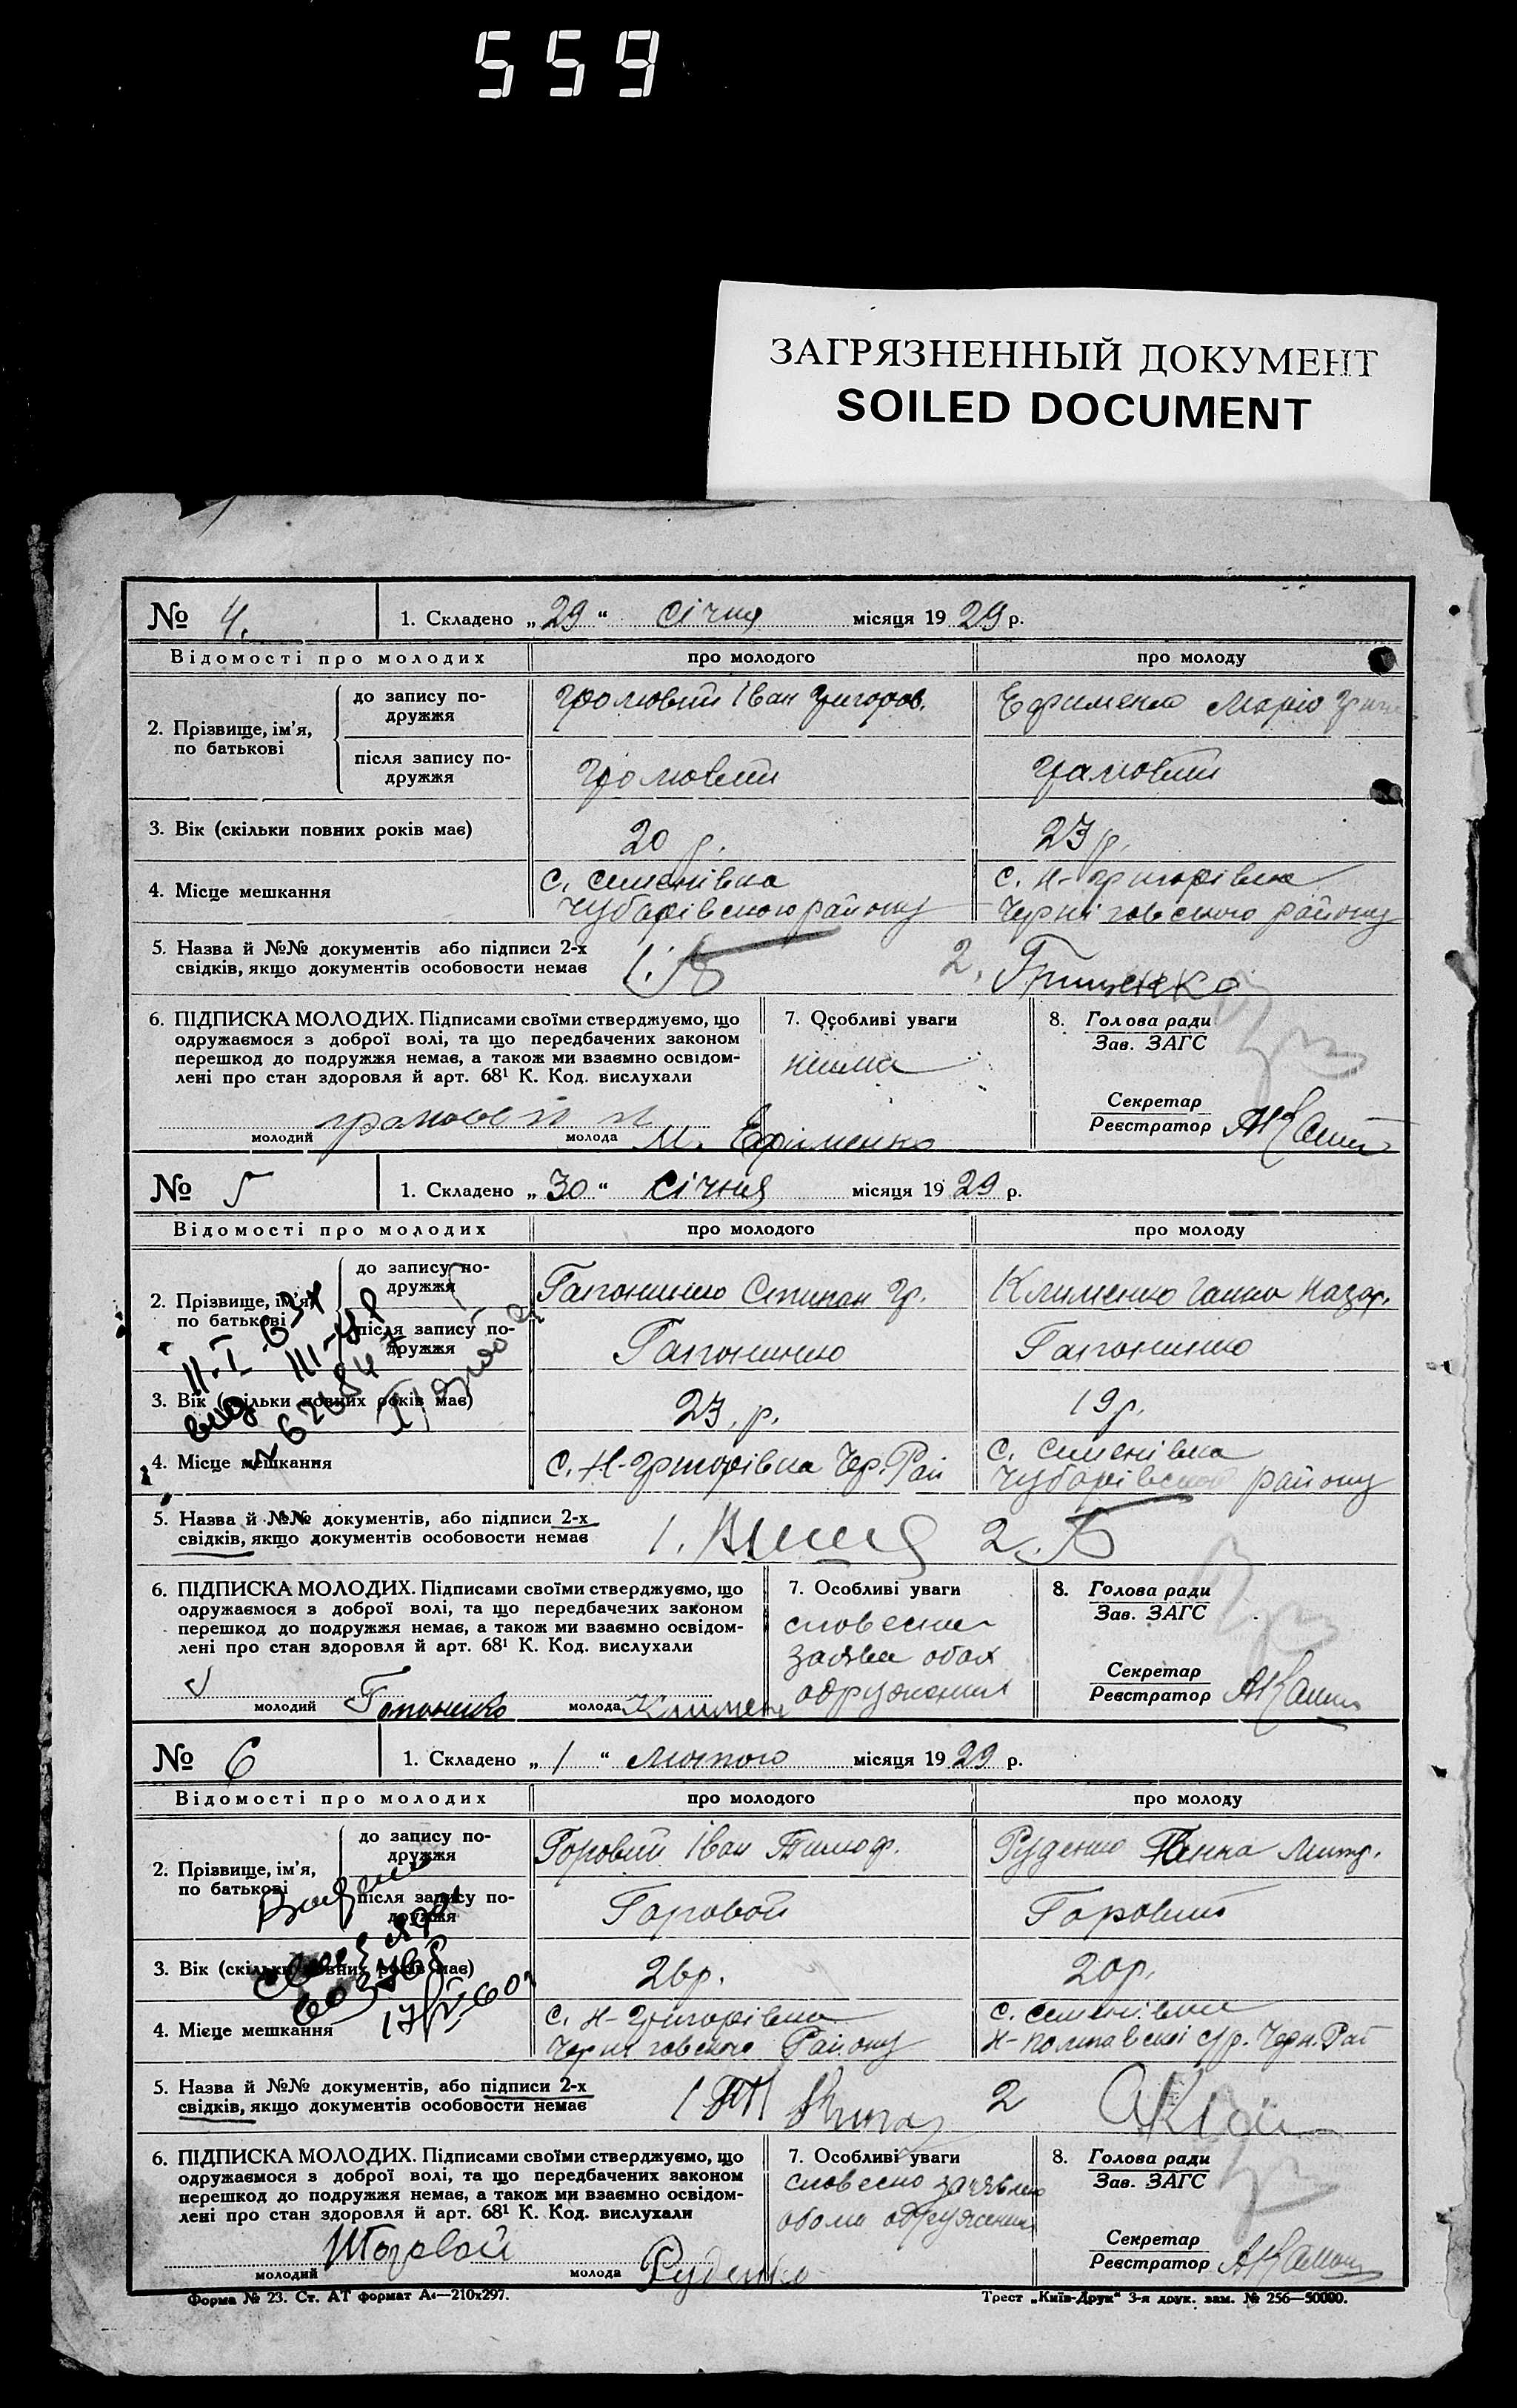 559
ЗАГРЯЗНЕННЫЙ ДОКУМЕНТ
SOILED DOCUMENT
№ 4. 1. Складено „29“ січня місяця 1929 р.
Відомості про молодих про молодого про молоду
2. Прізвище, ім'я, по батькові
до запису подружжя Іван Григоров. Ефименко Марію
після запису подружжя
3. Вік (скільки повних років має) 20 р. 23 р.
4. Місце мешкання с. Семенівка с. Н-Григорівка
Чубарівського району Черніговського району
5. Назва й №№ документів або підписи 2-х 1. 2. Грищенко
свідків, якщо документів особовости немає
6. ПІДПИСКА МОЛОДИХ. Підписами своїми стверджуємо, що
одружаємося з доброї волі, та що передбачених законом
перешкод до подружжя немає, а також ми взаємно освідом-
лені про стан здоровля й арт. 68¹ К. Код. вислухали
7. Особливі уваги
нима
8. Голова ради
Зав. ЗАГС
Секретар
Реєстратор
молодий молода М. Ефименко
№ 5 1. Складено „30“ січня місяця 1929 р.
Відомості про молодих про молодого про молоду
2. Прізвище, ім'я, по батькові
до запису подружжя Гапоненко Степан Гр. Клименко Ганна Назар.
після запису подружжя Гапоненко Гапоненко
3. Вік (скільки повних років має) 23. р. 19 р.
4. Місце мешкання с. Н-Григорівка Чер. Рай с. Семенівка
Чубарівської району
5. Назва й №№ документів, або підписи 2-х 1. 2.
свідків, якщо документів особовости немає
6. ПІДПИСКА МОЛОДИХ. Підписами своїми стверджуємо, що
одружаємося з доброї волі, та що передбачених законом
перешкод до подружжя немає, а також ми взаємно освідом-
лені про стан здоровля й арт. 68¹ К. Код. вислухали
7. Особливі уваги
словесни
заяви обох
одружения
8. Голова ради
Зав. ЗАГС
Секретар
Реєстратор
молодий Гапоненко молода Климен
№ 6 1. Складено „1“ лютого місяця 1929 р.
Відомості про молодих про молодого про молоду
2. Прізвище, ім'я, по батькові
до запису подружжя Горовий Іван Тимоф. Руденко
після запису подружжя Горовой Горовий
3. Вік (скільки повних років має) 26р. 20р.
4. Місце мешкання с. Н-Григорівка с. Семенівка
Чернiговського Району Н-Полтавської с/р. Черн. Рай
17/V-60
5. Назва й №№ документів, або підписи 2-х 1 2
свідків, якщо документів особовости немає
6. ПІДПИСКА МОЛОДИХ. Підписами своїми стверджуємо, що
одружаємося з доброї волі, та що передбачених законом
перешкод до подружжя немає, а також ми взаємно освідом-
лені про стан здоровля й арт. 68¹ К. Код. вислухали
7. Особливі уваги
словесно заявлено
обома
8. Голова ради
Зав. ЗАГС
Секретар
Реєстратор
молодий молода Руденко
Форма № 23. Ст. АТ формат А₄—210х297. Трест „Київ-Друк“ 3-я друк. зам. № 256—50000.